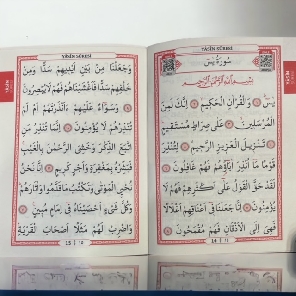 YÂSÎN SÛRESİ
سُورَةُ يٰسٓ
بِسْمِ اللّٰهِ الرَّحْمٰنِ الرَّحِيمِ
يٰسٓ وَالْقُرْاٰنِ الْحَكِيمِ اِنَّكَ لَمِنَ
الْمُرْسَلِينَ عَلٰى صِرَاطٍ مُسْتَقِيمٍ
تَنْزِيلَ الْعَزِيزِ الرَّحِيمِ لِتُنْذِرَ
قَوْمًا مَا اُنْذِرَ اٰبَاؤُهُمْ فَهُمْ غَافِلُونَ
لَقَدْ حَقَّ الْقَوْلُ عَلٰى اَكْثَرِهِمْ فَهُمْ لَا
يُؤْمِنُونَ اِنَّا جَعَلْنَا فِى اَعْنَاقِهِمْ اَغْلَالًا
فَهِىَ اِلَى الْاَذْقَانِ فَهُمْ مُقْمَحُونَ
14 ١٤
YÂSÎN SÛRESİ
وَجَعَلْنَا مِنْ بَيْنِ اَيْدِيهِمْ سَدًّا وَمِنْ
خَلْفِهِمْ سَدًّا فَاَغْشَيْنَاهُمْ فَهُمْ لَا يُبْصِرُونَ
وَسَوَاءٌ عَلَيْهِمْ ءَاَنْذَرْتَهُمْ اَمْ لَمْ
تُنْذِرْهُمْ لَا يُؤْمِنُونَ اِنَّمَا تُنْذِرُ مَنِ
اتَّبَعَ الذِّكْرَ وَخَشِىَ الرَّحْمٰنَ بِالْغَيْبِ
فَبَشِّرْهُ بِمَغْفِرَةٍ وَاَجْرٍ كَرِيمٍ اِنَّا نَحْنُ
نُحْيِ الْمَوْتٰى وَنَكْتُبُ مَا قَدَّمُوا وَاٰثَارَهُمْ
وَكُلَّ شَىْءٍ اَحْصَيْنَاهُ فِى اِمَامٍ مُبِينٍ
وَاضْرِبْ لَهُمْ مَثَلًا اَصْحَابَ الْقَرْيَةِ
15 ١٥